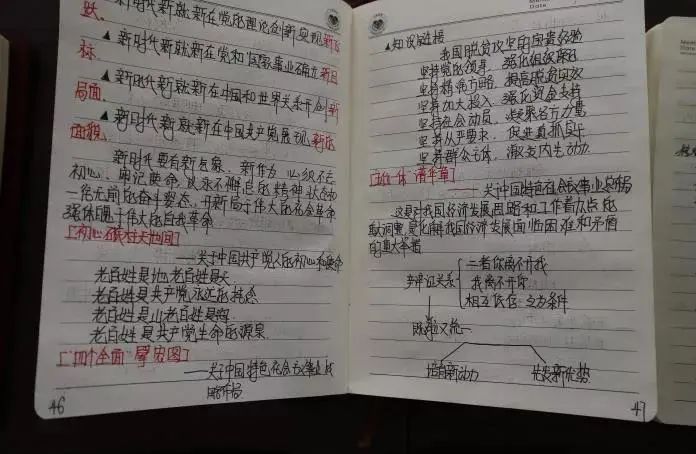 跃。
▲新时代新就新在党的理论创新实现新飞
▲新时代新就新在党和国家事业确立新目
标。
▲新时代新就新在中国和世界关系开创新
局面。
▲新时代新就新在中国共产党展现新的
面貌。
新时代要有新气象、新作为,必须不忘
初心、牢记使命,以永不懈怠的精神状态和
一往无前的奋斗姿态,开新局于伟大的社会革命
强体魄于伟大的自我革命
[初心不改在天地间]
——关于中国共产党人的初心和使命
老百姓是地,老百姓是天
老百姓是共产党永远的挂念
老百姓是山老百姓是海
老百姓是共产党生命的源泉
["四个全面"擘宏图]
——关于中国特色社会主义事业战
略布局
46
▲知识链接
我国脱贫攻坚的宝贵经验
坚持党的领导、强化组织保证
坚持精准方略、提高脱贫实效
坚持加大投入、强化资金支持
坚持社会动员、凝聚各方力量
坚持从严要求、促进真抓实干
坚持群众主体、激发内生动力
——关于中国特色社会主义事业总布局
这是对我国经济发展思路和工作着力点的
是化解我国经济发展面临困难和矛盾
的重大举措
辩证关系
二者你离不开我
我离不开你
相互依存、互为条件
既 又统一
培育新动力
优势
47